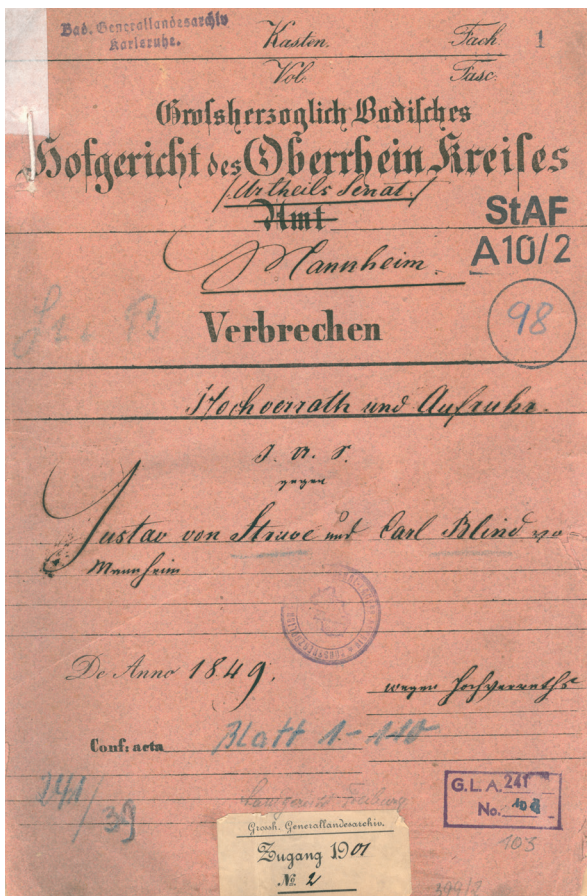 Bad. Generallandesarchiv
Karlsruhe.
Kasten. Fach. 1
Vol. Fasc.
Grossherzoglich Badisches
Hofgericht des Oberrhein Kreises
/Urtheils Senat./
Amt
StAF
A10/2
Mannheim.
98
Verbrechen
Hochverrath und Aufruhr.
J. U. S.
gegen
Gustav von Struve und Carl Blind von
Mannheim
De Anno 1849.
wegen Hochverraths
Conf: acta Blatt 1-110
241/39
G.L.A. 241
No.
103
Grossh. Generallandesarchiv.
Zugang 1901
№ 2